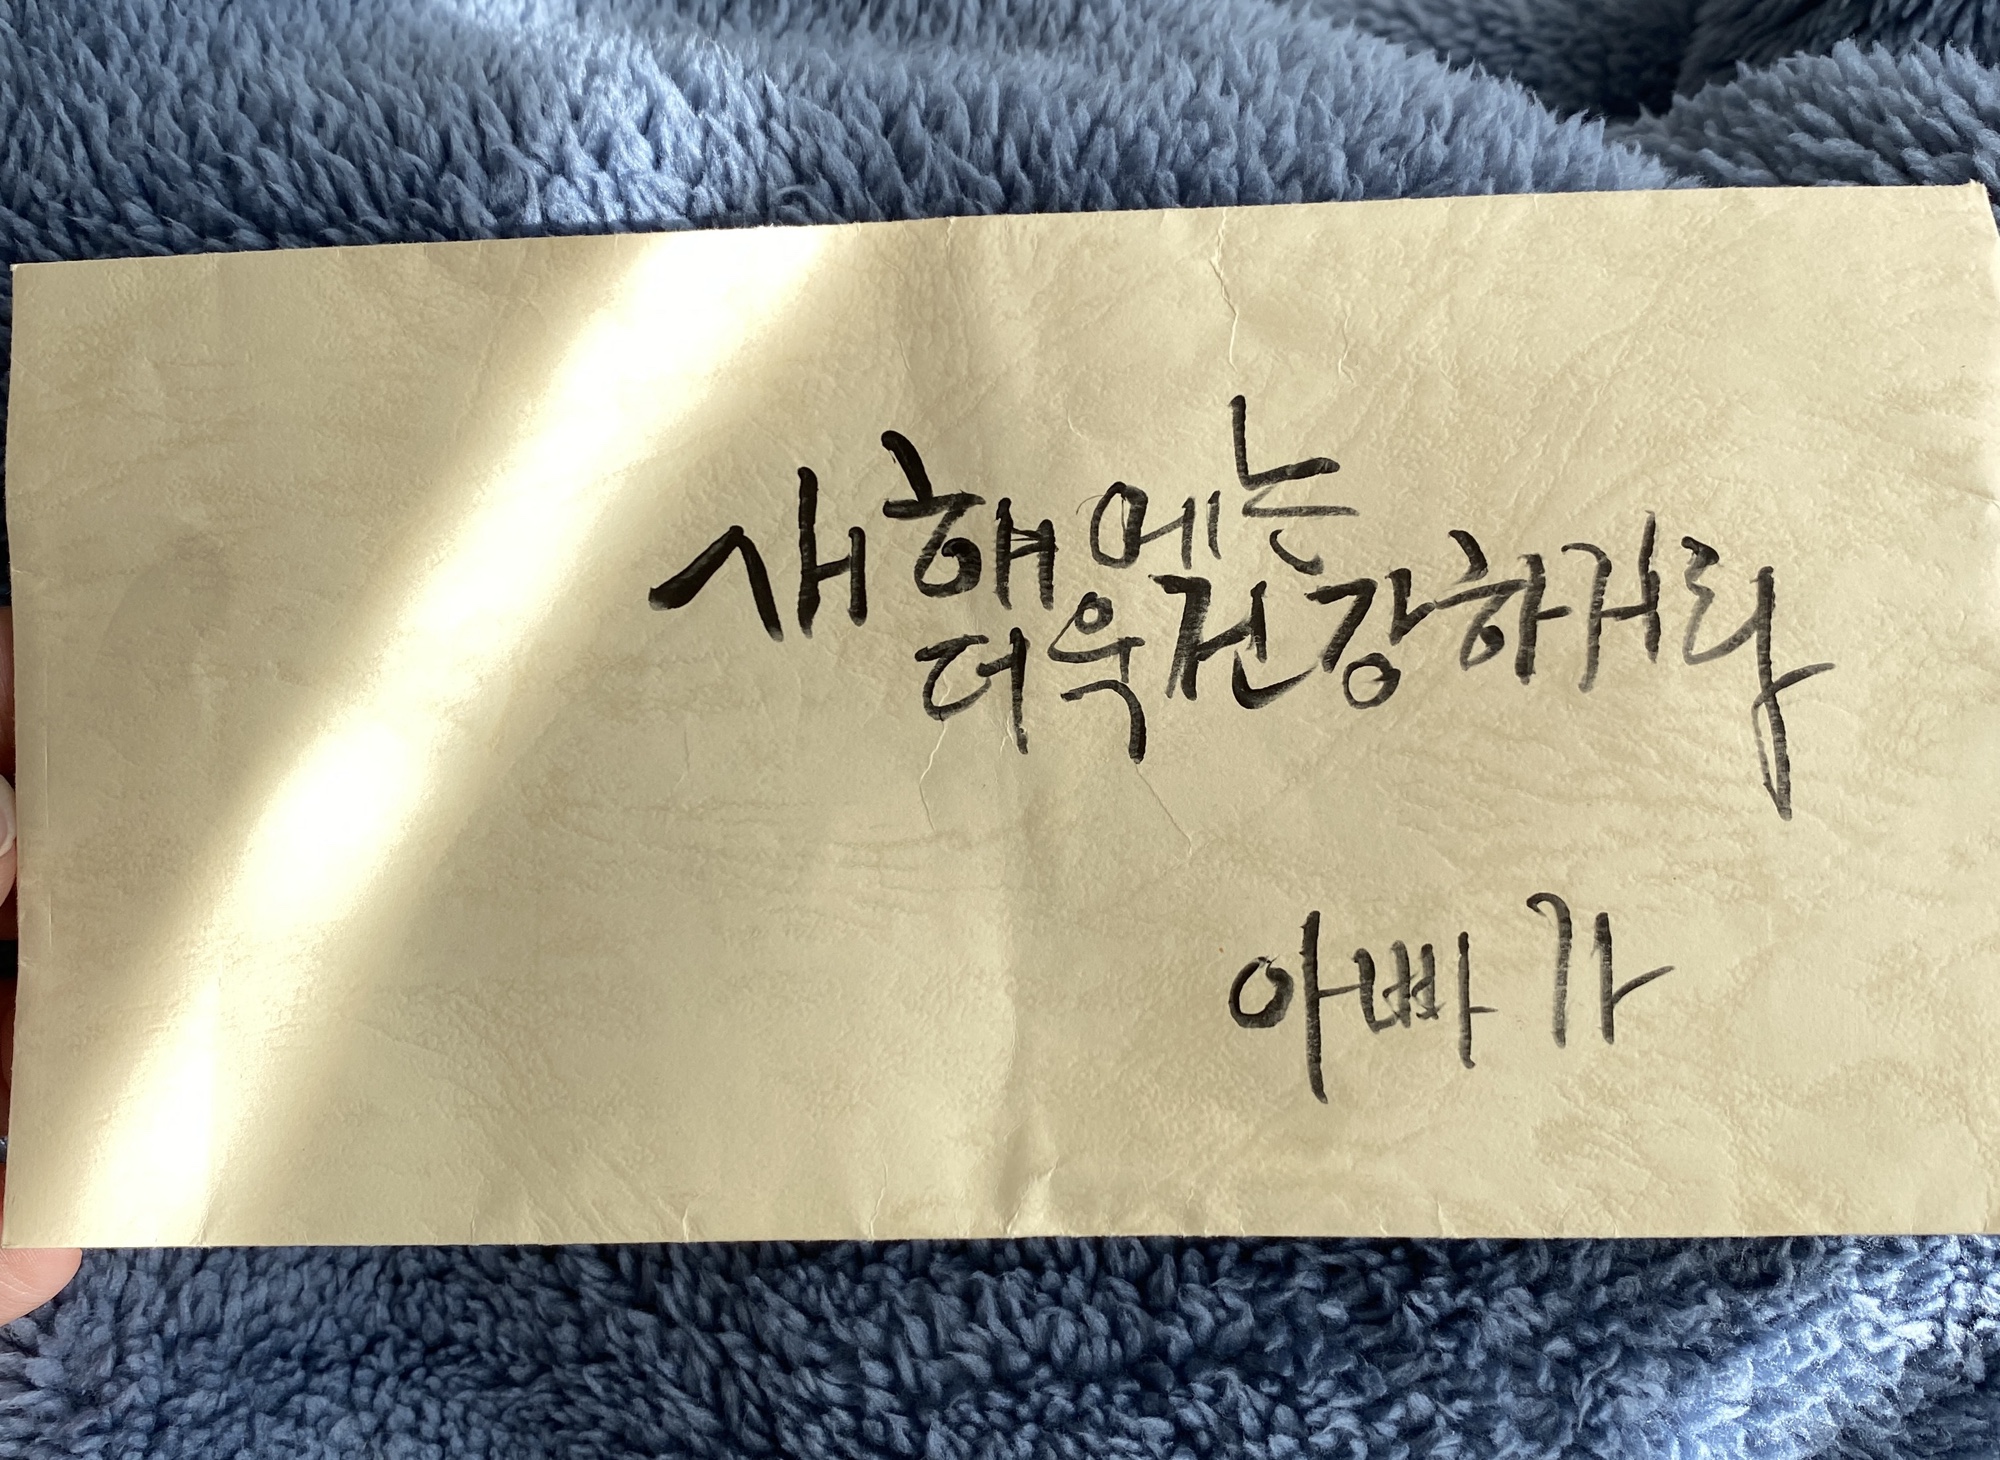 새해에는
더욱건강하거라
아빠가